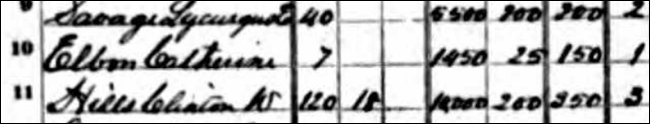 9 Savage Lycurgus L 40 5500 200 200 2
10 Elbon Catherine 7 1450 25 150 1
11 Hills Clinton W 120 18 200 350 3